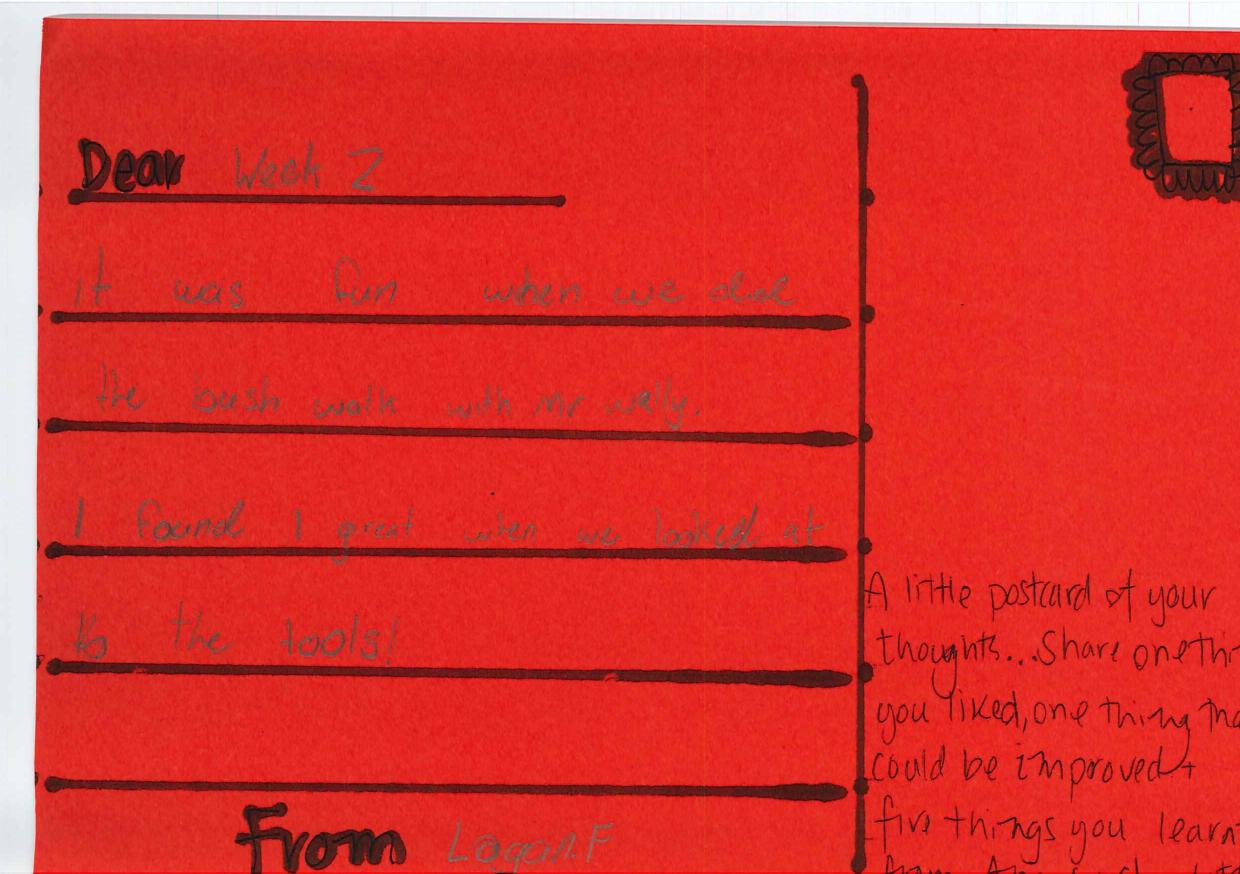 Dear Week 2
it was fun when we did
the bush walk with Mr wally.
I found I great when we looked at
to the tools!
From Logan.F
A little postcard of your
thoughts...Share one thi
you liked, one thing tha
could be improved +
five things you learn